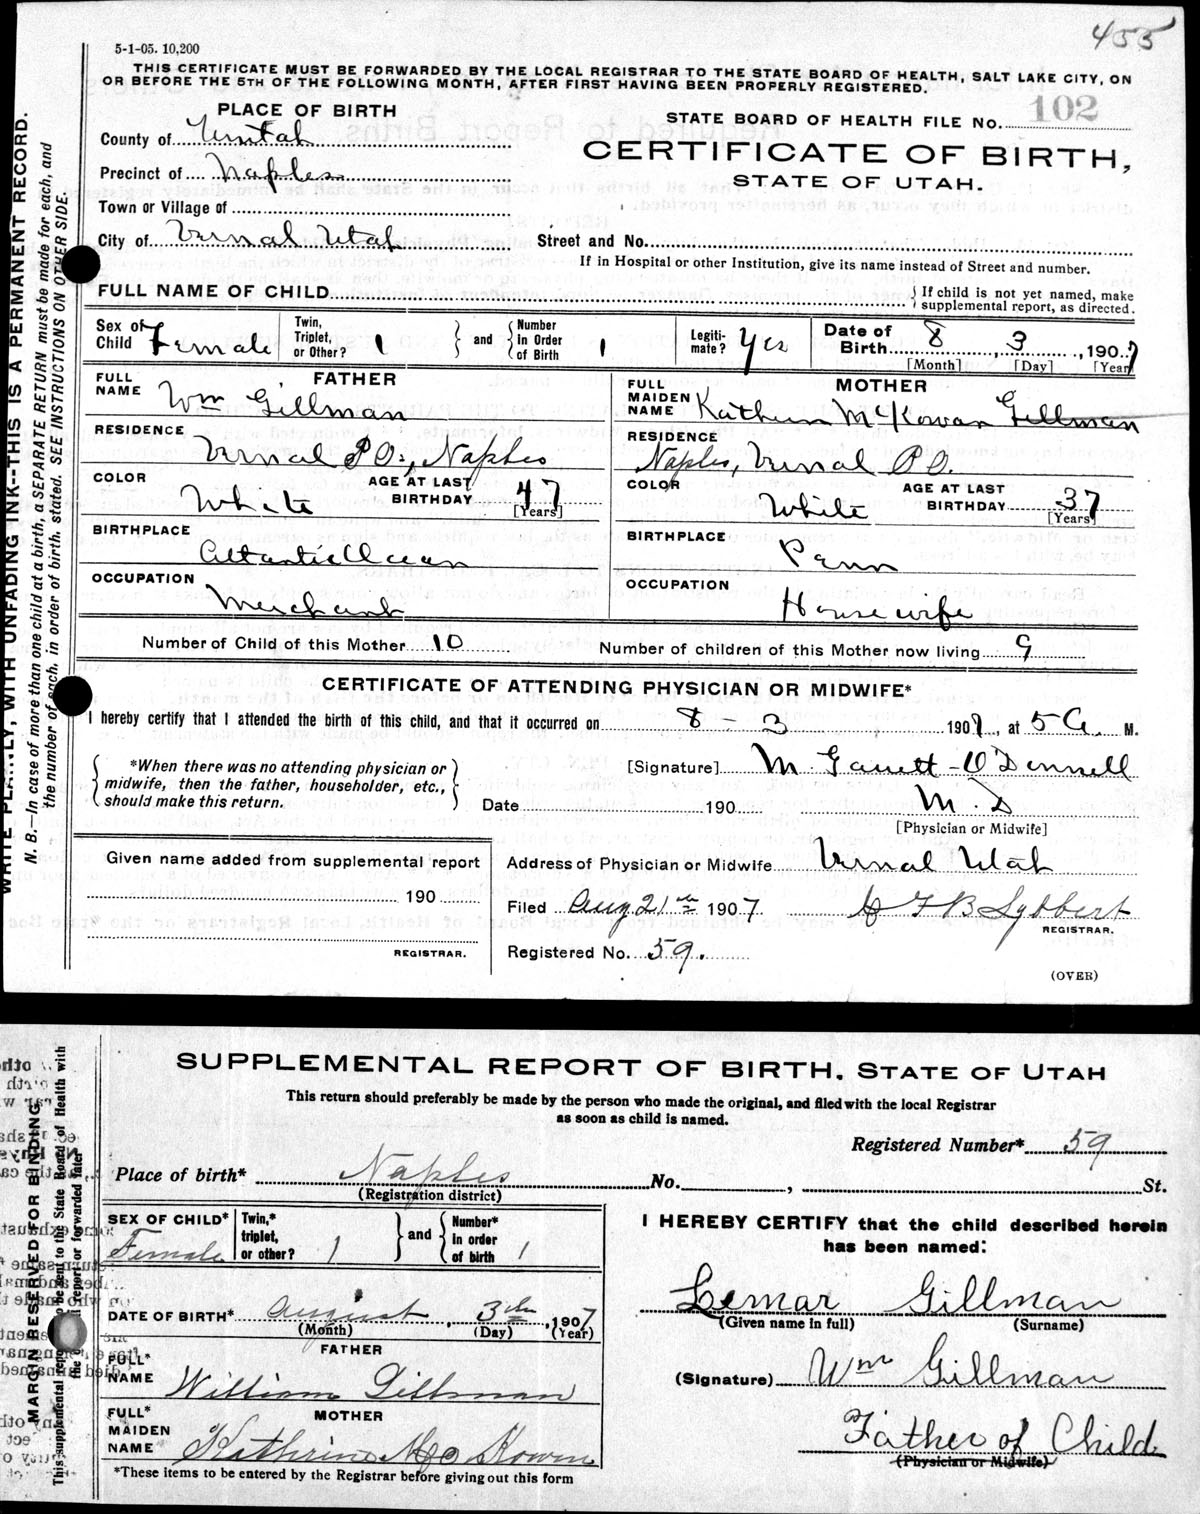 455
5-1-05. 10,200
THIS CERTIFICATE MUST BE FORWARDED BY THE LOCAL REGISTRAR TO THE STATE BOARD OF HEALTH, SALT LAKE CITY, ON
OR BEFORE THE 5TH OF THE FOLLOWING MONTH, AFTER FIRST HAVING BEEN PROPERLY REGISTERED.
PLACE OF BIRTH
STATE BOARD OF HEALTH FILE No. 102
County of Uintah
CERTIFICATE OF BIRTH,
Precinct of Naples
STATE OF UTAH.
Town or Village of
City of Vernal Utah
Street and No.
If in Hospital or other Institution, give its name instead of Street and number.
FULL NAME OF CHILD
If child is not yet named, make
supplemental report, as directed.
Sex of Child Female
Twin, Triplet, or Other? 1
and Number In Order of Birth 1
Legiti-mate? Yes
Date of Birth 8, 3, 1907
[Month] [Day] [Year]
FATHER
FULL NAME Wm Gillman
MOTHER
FULL MAIDEN NAME Kathern McKowan Gillman
RESIDENCE Vernal P.O., Naples
RESIDENCE Naples, Vernal P.O.
COLOR White
AGE AT LAST BIRTHDAY 47
[Years]
COLOR White
AGE AT LAST BIRTHDAY 37
[Years]
BIRTHPLACE Atlantic Ocean
BIRTHPLACE Penn
OCCUPATION Merchant
OCCUPATION House wife
Number of Child of this Mother 10
Number of children of this Mother now living 9
CERTIFICATE OF ATTENDING PHYSICIAN OR MIDWIFE*
I hereby certify that I attended the birth of this child, and that it occurred on 8 - 3 1907, at 5 A. M.
*When there was no attending physician or
midwife, then the father, householder, etc.,
should make this return.
[Signature] M. Garrett-O'Donnell
Date 190
M. D
[Physician or Midwife]
Given name added from supplemental report
190
REGISTRAR.
Address of Physician or Midwife Vernal Utah
Filed Aug 21st 1907
REGISTRAR.
Registered No. 59.
(OVER)
WRITE PLAINLY, WITH UNFADING INK--THIS IS A PERMANENT RECORD.
N. B.—In case of more than one child at a birth, a SEPARATE RETURN must be made for each, and
the number of each, in order of birth, stated. SEE INSTRUCTIONS ON OTHER SIDE.
SUPPLEMENTAL REPORT OF BIRTH. STATE OF UTAH
This return should preferably be made by the person who made the original, and filed with the local Registrar
as soon as child is named.
Registered Number* 59
Place of birth* Naples No. , St.
(Registration district)
SEX OF CHILD* Female
Twin,* triplet, or other? 1
and Number* in order of birth 1
I HEREBY CERTIFY that the child described herein
has been named:
Lemar Gillman
(Given name in full) (Surname)
DATE OF BIRTH* August, 3th, 1907
(Month) (Day) (Year)
FATHER
FULL* NAME William Gillman
(Signature) Wm Gillman
MOTHER
FULL* MAIDEN NAME Kathrine Mc Kowen
Father of Child
(Physician or Midwife)
*These items to be entered by the Registrar before giving out this form
MARGIN RESERVED FOR BINDING